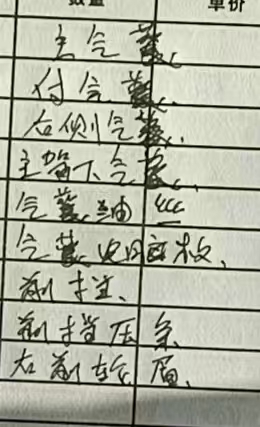 数量 单价
主气囊
付气囊
右侧气囊
主驾下气囊
气囊油丝
气囊
前挡
前挡压条
右前轮眉